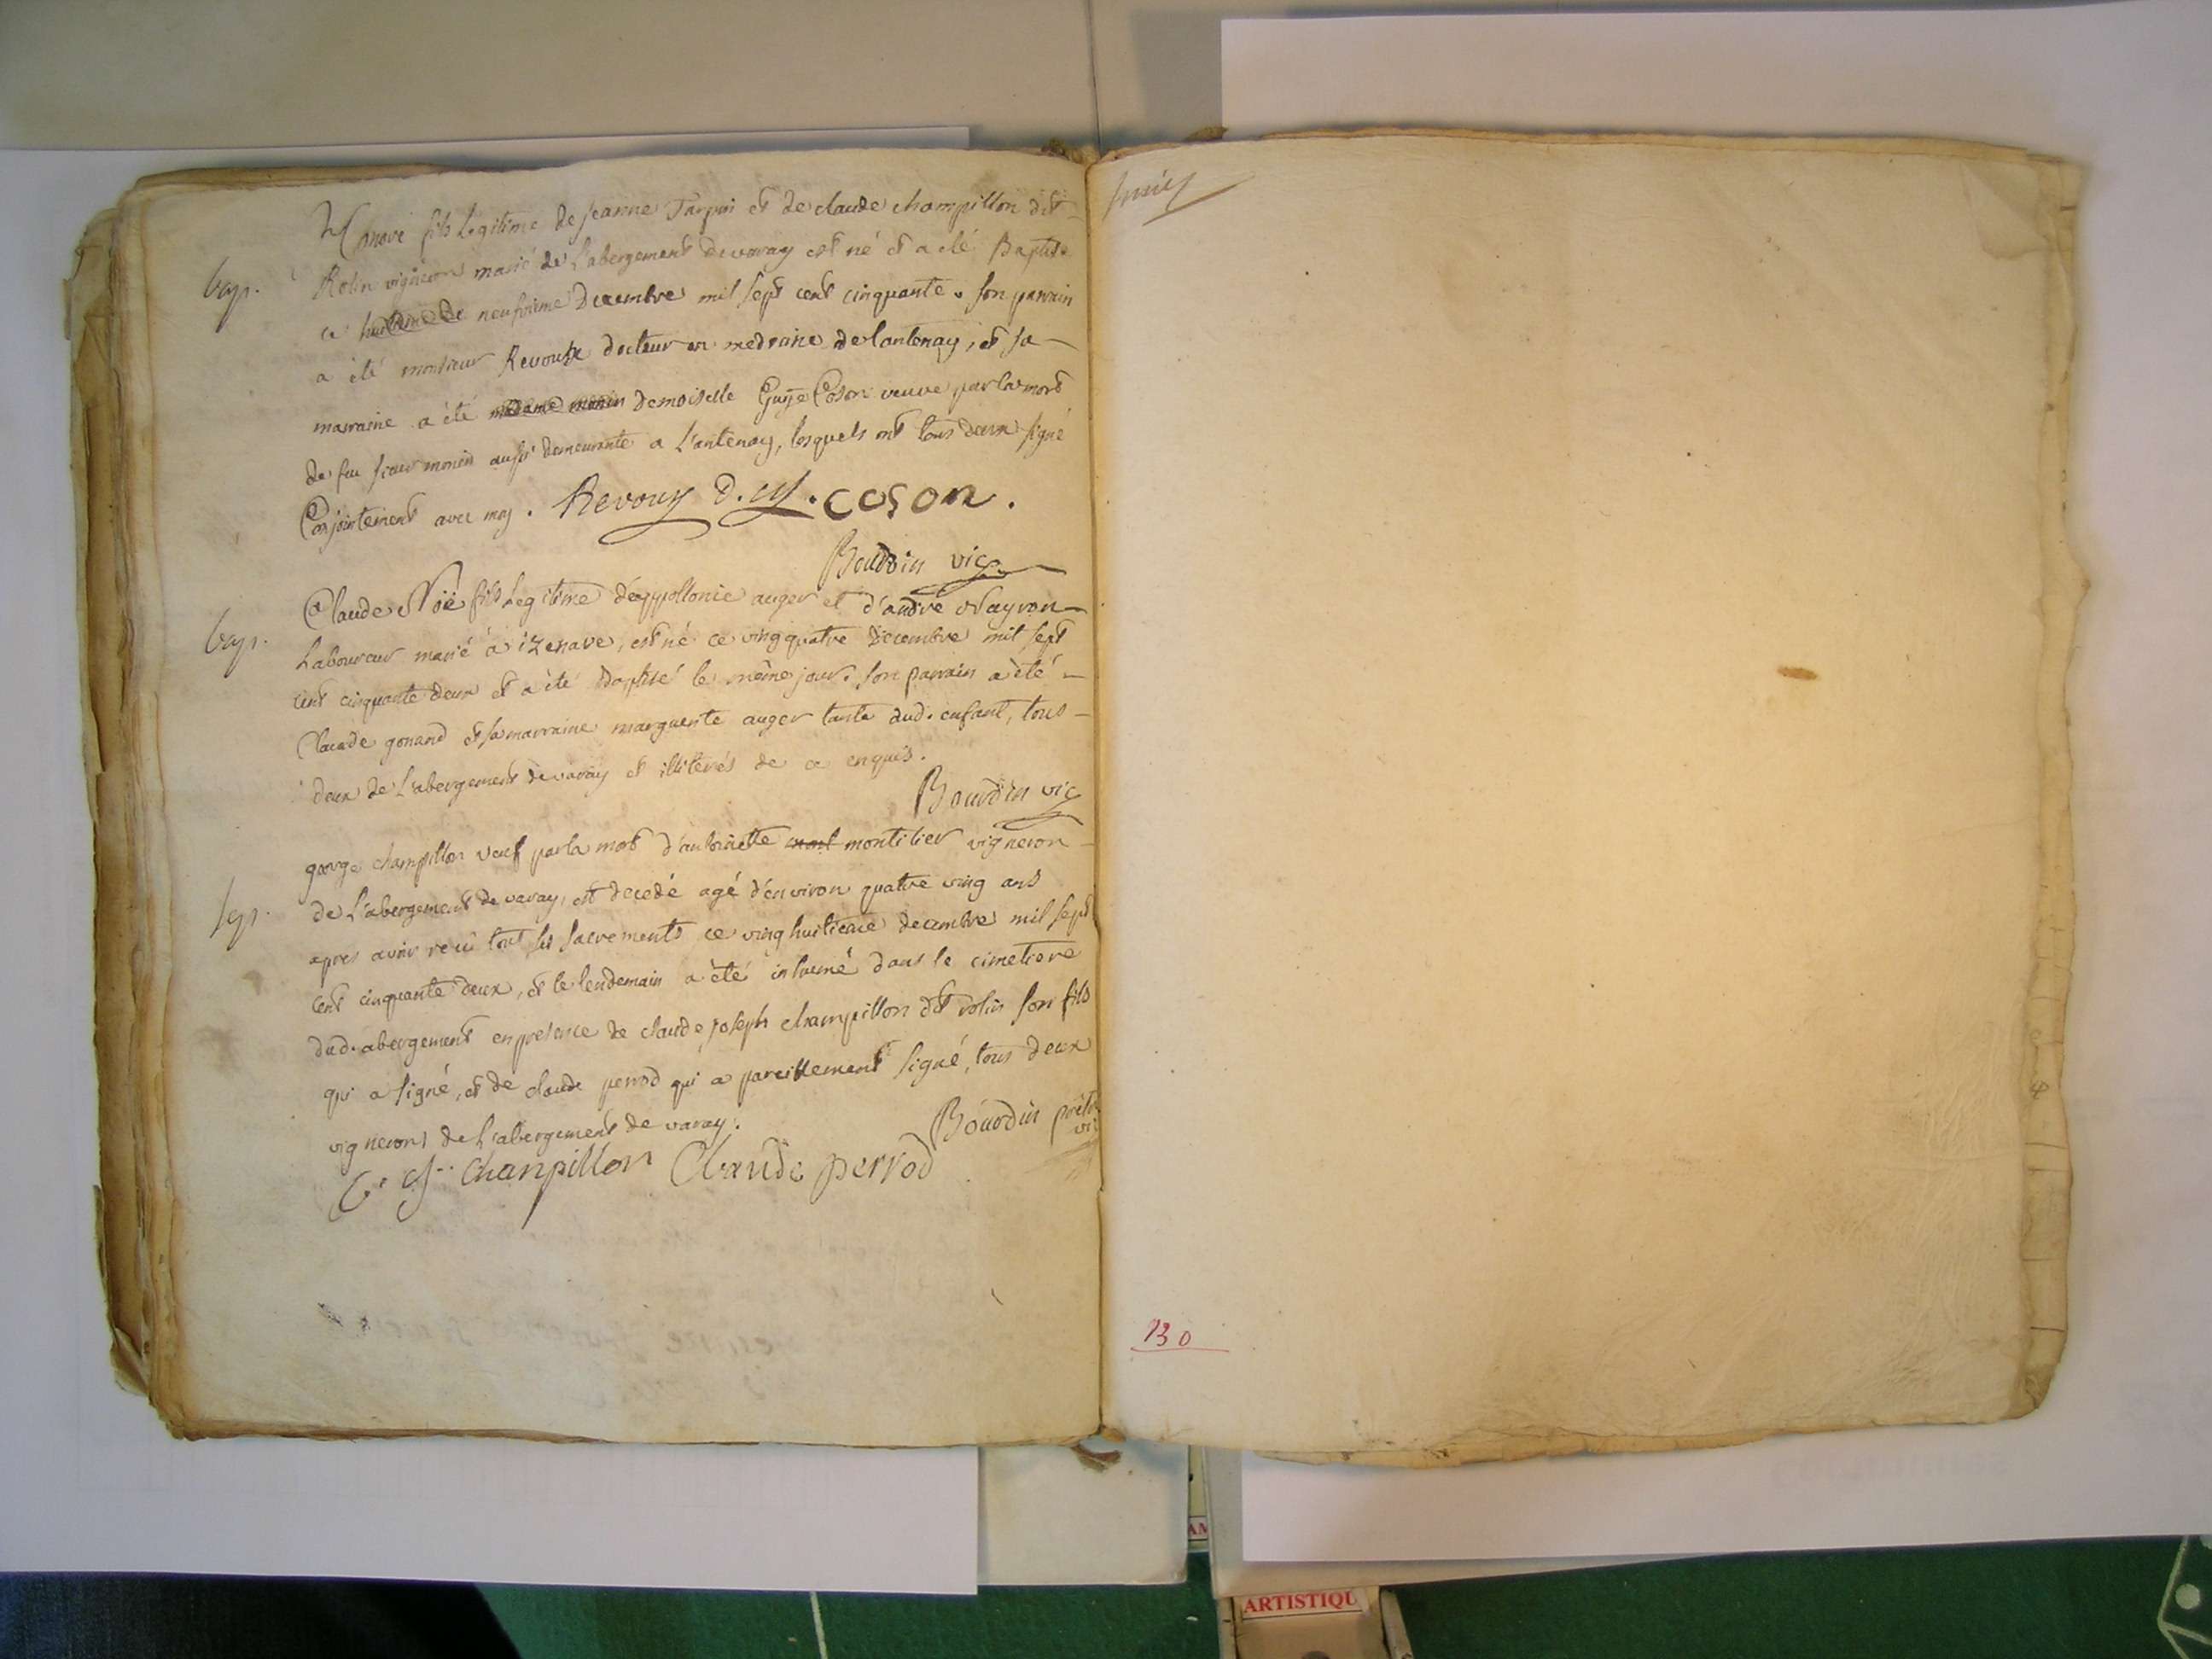 honoré fils Legitime de jeanne Tarpin et de claude champillon dit
bap.
Rolin vigneron marié de L'abergement de varay est né et a été Baptisé
ce neufvieme decembre mil sept cent cinquante . son parrain
a été monsieur Revoux docteur en medecine de lantenay, et sa
marraine a été madame monin demoiselle Guye Coson veuve par la mort
de feu sieur monin aussi demeurante a L'antenay, lesquels ont tous deux signé
Conjointement avec moy . Revoux D. M. coson .
Bourdin vic
bap.
Claude Noë fils Legitime d'appollonie auger et d'andre Nayron
Laboureur marié à izenave, est né ce vingquatre Decembre mil sept
cent cinquante deux et a été baptisé le même jour. son parrain a été
Claude gonand et sa marraine marguerite auger tante dud. enfant, tous
deux de L'abergement de varay et illiterés de ce enquis.
Bourdin vic
sep.
george champillon veuf par la mort d'antoinette mont montilier vigneron
de L'abergement de varay, est decedé agé d'environ quatre ving ans
apres avoir reçû tous les sacrements ce vinghuitieme decembre mil sept
cent cinquante deux, et le lendemain a été inhumé dans le cimetiere
dud. abergement en presence de claude joseph champillon dit rolin son fils
qui a signé, et de claude perrod qui a pareillement signé, tous deux
vignerons de L'abergement de varay.
Bourdin prêtre
vic
C. J. Chanpillon Claude perrod
130